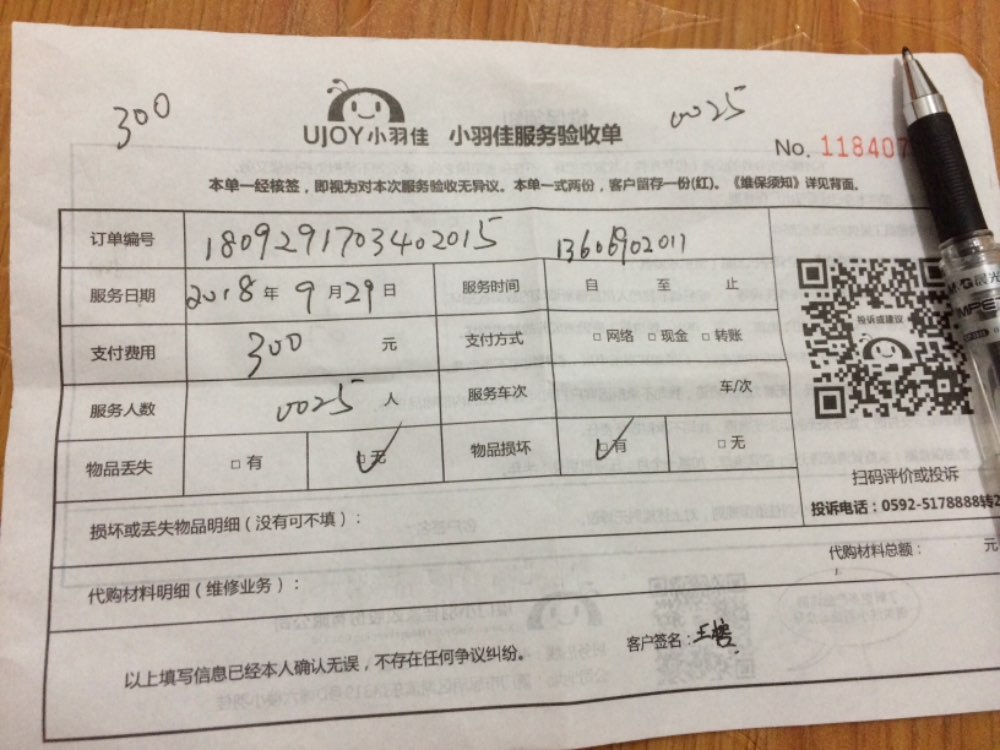 300
0025
UJOY小羽佳 小羽佳服务验收单
No. 118407
本单一经核签，即视为对本次服务验收无异议。本单一式两份，客户留存一份(红)。《维保须知》详见背面。
订单编号 1809291703402015 13606902011
服务日期 2018年 9月29日 服务时间 自 至 止
支付费用 300 元 支付方式 □网络 □现金 □转账
服务人数 0025 人 服务车次 车/次
物品丢失 □有 □无 物品损坏 □有 □无
投诉或建议
扫码评价或投诉
投诉电话：0592-5178888转2
损坏或丢失物品明细（没有可不填）：
代购材料总额： 元
代购材料明细（维修业务）：
客户签名：
以上填写信息已经本人确认无误，不存在任何争议纠纷。
M&G晨光